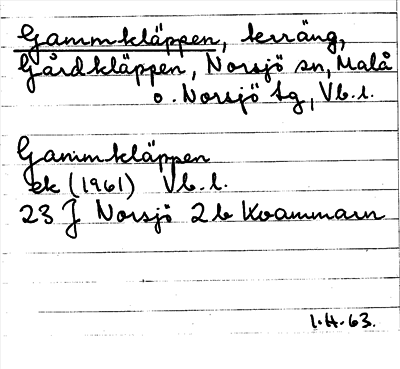 Gammkläppen, terräng,
Gårdkläppen, Norsjö sn, Malå
o. Norsjö tg, Vb. l.
Gammkläppen
ek (1961) Vb. l.
23 J Norsjö 2 b Kvammarn
1.H.63.